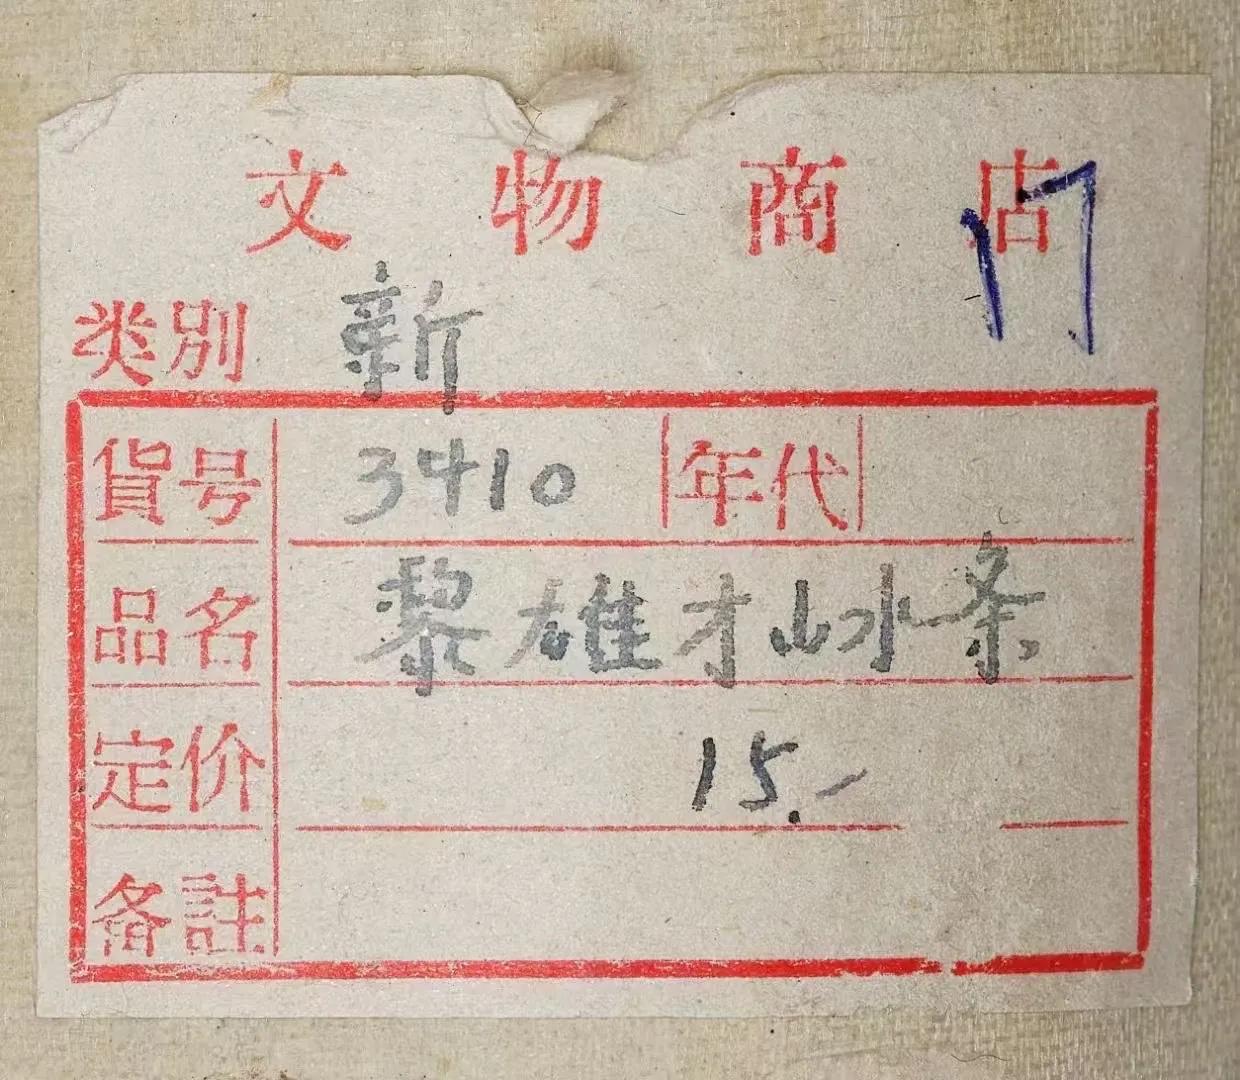 文物商店
类別 新
貨号 3410 年代
品名 黎雄才山水条
定价 15.-
备註